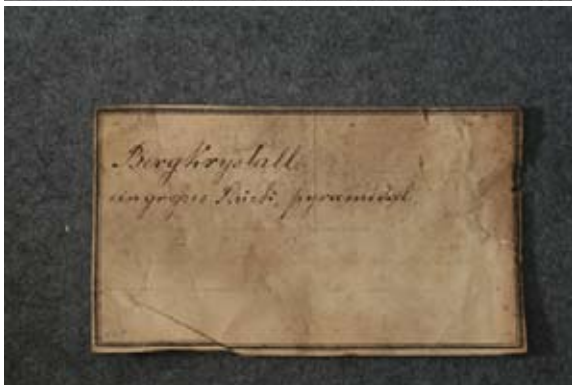 Bergkrystall.
ein großes Stück, pyramidal.